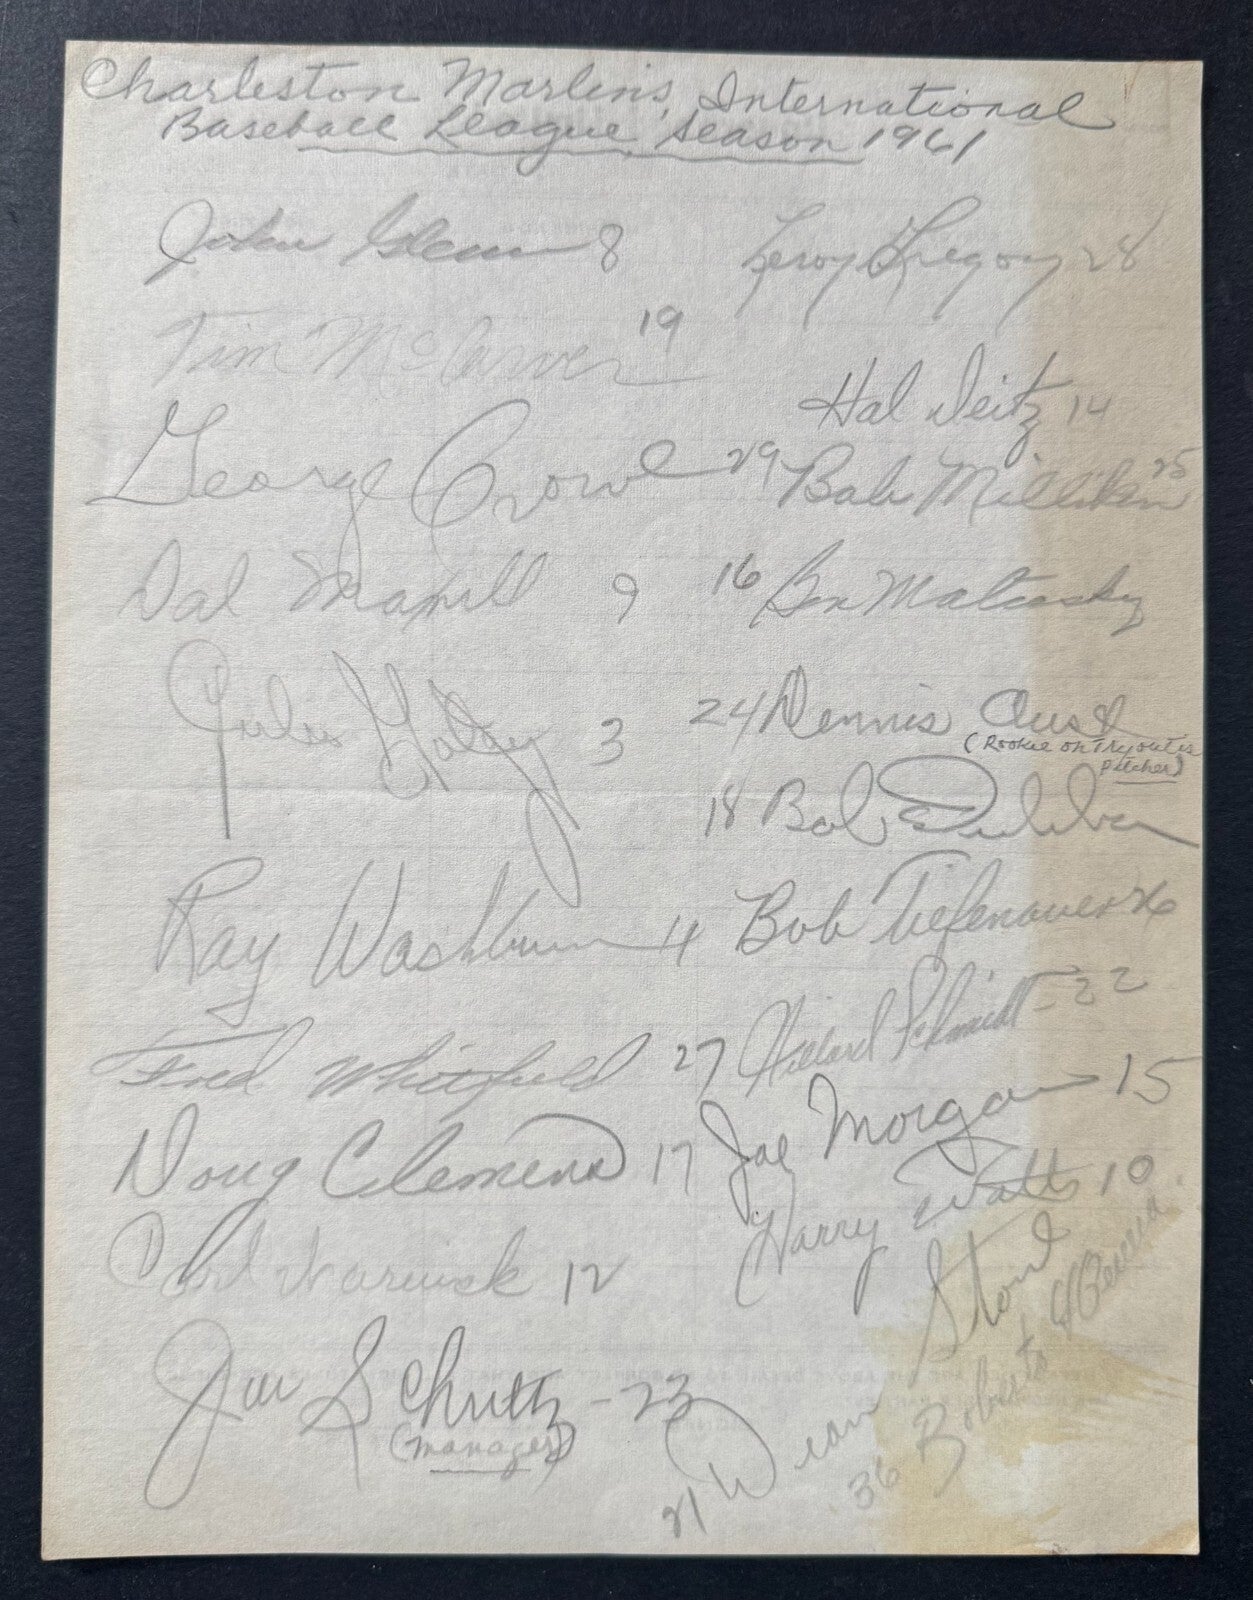 Charleston Marlins, International
Baseball League, Season 1961
John Glenn 8
Tim McCarver 19
George Crowe 29
Dal Maxvill 9
Julio Gotay 3
Ray Washburn 4
Fred Whitfield 27
Doug Clemens 17
Carl Warwick 12
Joe Schultz - 23
(manager)
Leroy Gregory 28
Hal Deitz 14
Bob Milliken 25
16 Ben Mateosky
24 Dennis Aust
(Rookie on Tryout is
pitcher)
18 Bob
Bob Tiefenauer 26
Willard Schmidt - 22
Joe Morgan 15
Harry Watts 10
21 Dean Stone
36 Roberto Herrera